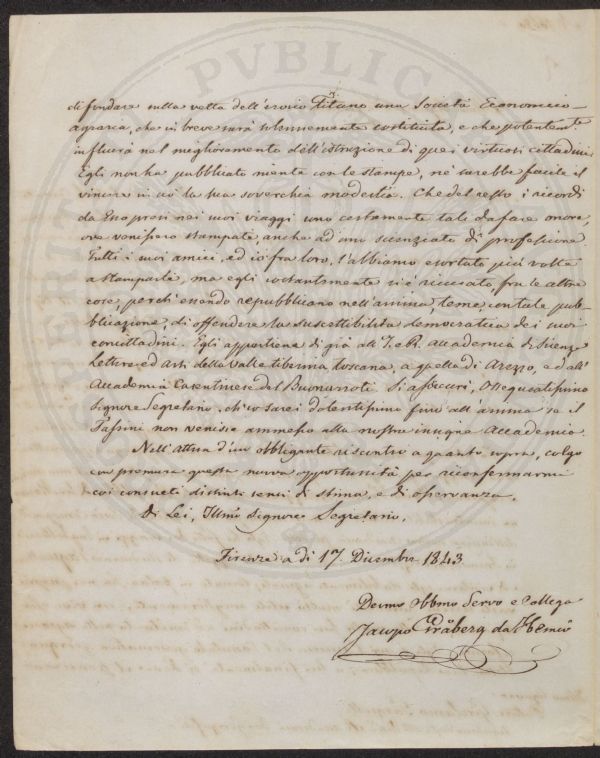 di fondare sulla vetta dell'eroico Titano una Società Economico-
agraria, che in breve sarà solennemente costituita, e che potentemte.
influirà nel miglioramento dell'istruzione di quei virtuosi cittadini.
Egli non ha pubblicato niente con le stampe, nè sarebbe facile il
vincere in ciò la sua soverchia modestia. Che del resto i ricordi
da Esso presi nei suoi viaggi sono certamente tali da fare onore,
ove venissero stampati, anche ad uno scienziato di professione.
Tutti i suoi amici, ed io fra loro, l'abbiamo esortato più volte
a stamparli, ma egli costantemente si è ricusato, fra le altre
cose perchè essendo repubblicano nell'anima, teme, con tale pub-
blicazione, di offendere la suscettibilità democratica dei suoi
concittadini. Egli appartiene di già all'I. e R. Accademia di Scienze
Lettere ed Arti della Valle tiberina toscana, a quella di Arezzo, ed all'
Accademia Casentinese del Buonarroti. Si assecuri, Ossequiatissimo
Signore Segretario, ch'io sarei dolentissimo fino all'anima se il
Fassini non venisse ammesso alla nostra insigne Accademia.
Nell'attesa d'un obbligante riscontro a quanto sopra, colgo
con premura questa nuova opportunità per riconfermarmi
coi consueti distinti sensi di stima, e di osservanza,
Di Lei, Illmo Signore Segretario,
Firenze a dì 17. Dicembre 1843
Devmo Obbmo Servo e Collega
Jacopo Gråberg da Hemsö
PVBLICA